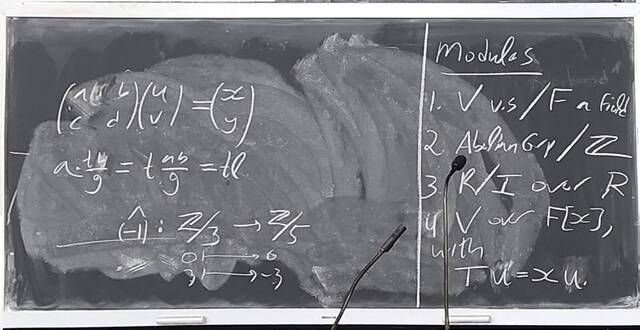 (a b c d)(u v) = (x y)
a·tb/g = t ab/g = tl
(-1)^ : Z/3 → Z/5
0 ↦ 0
3 ↦ -3
Modules
1. V v.s / F a field
2. Abelian Grp / Z
3 R/I over R
4 V over F[x],
with
Tu = xu.